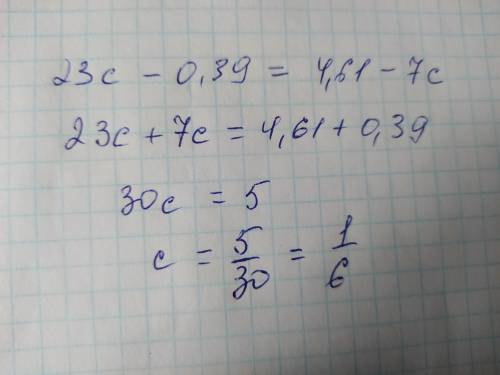 23c - 0,39 = 4,61 - 7c
23c + 7c = 4,61 + 0,39
30c = 5
c = 5/30 = 1/6